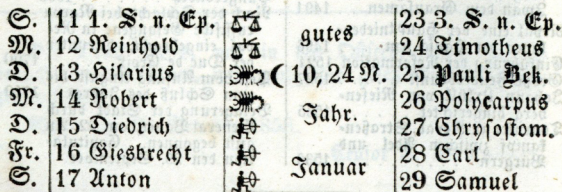 S. 11 1. S. n. Ep. 23 3. S. n. Ep.
M. 12 Reinhold gutes 24 Timotheus
D. 13 Hilarius 10, 24 N. 25 Pauli Bek.
M. 14 Robert 26 Polycarpus
D. 15 Diedrich Jahr. 27 Chrysostom.
Fr. 16 Giesbrecht 28 Carl
S. 17 Anton Januar 29 Samuel